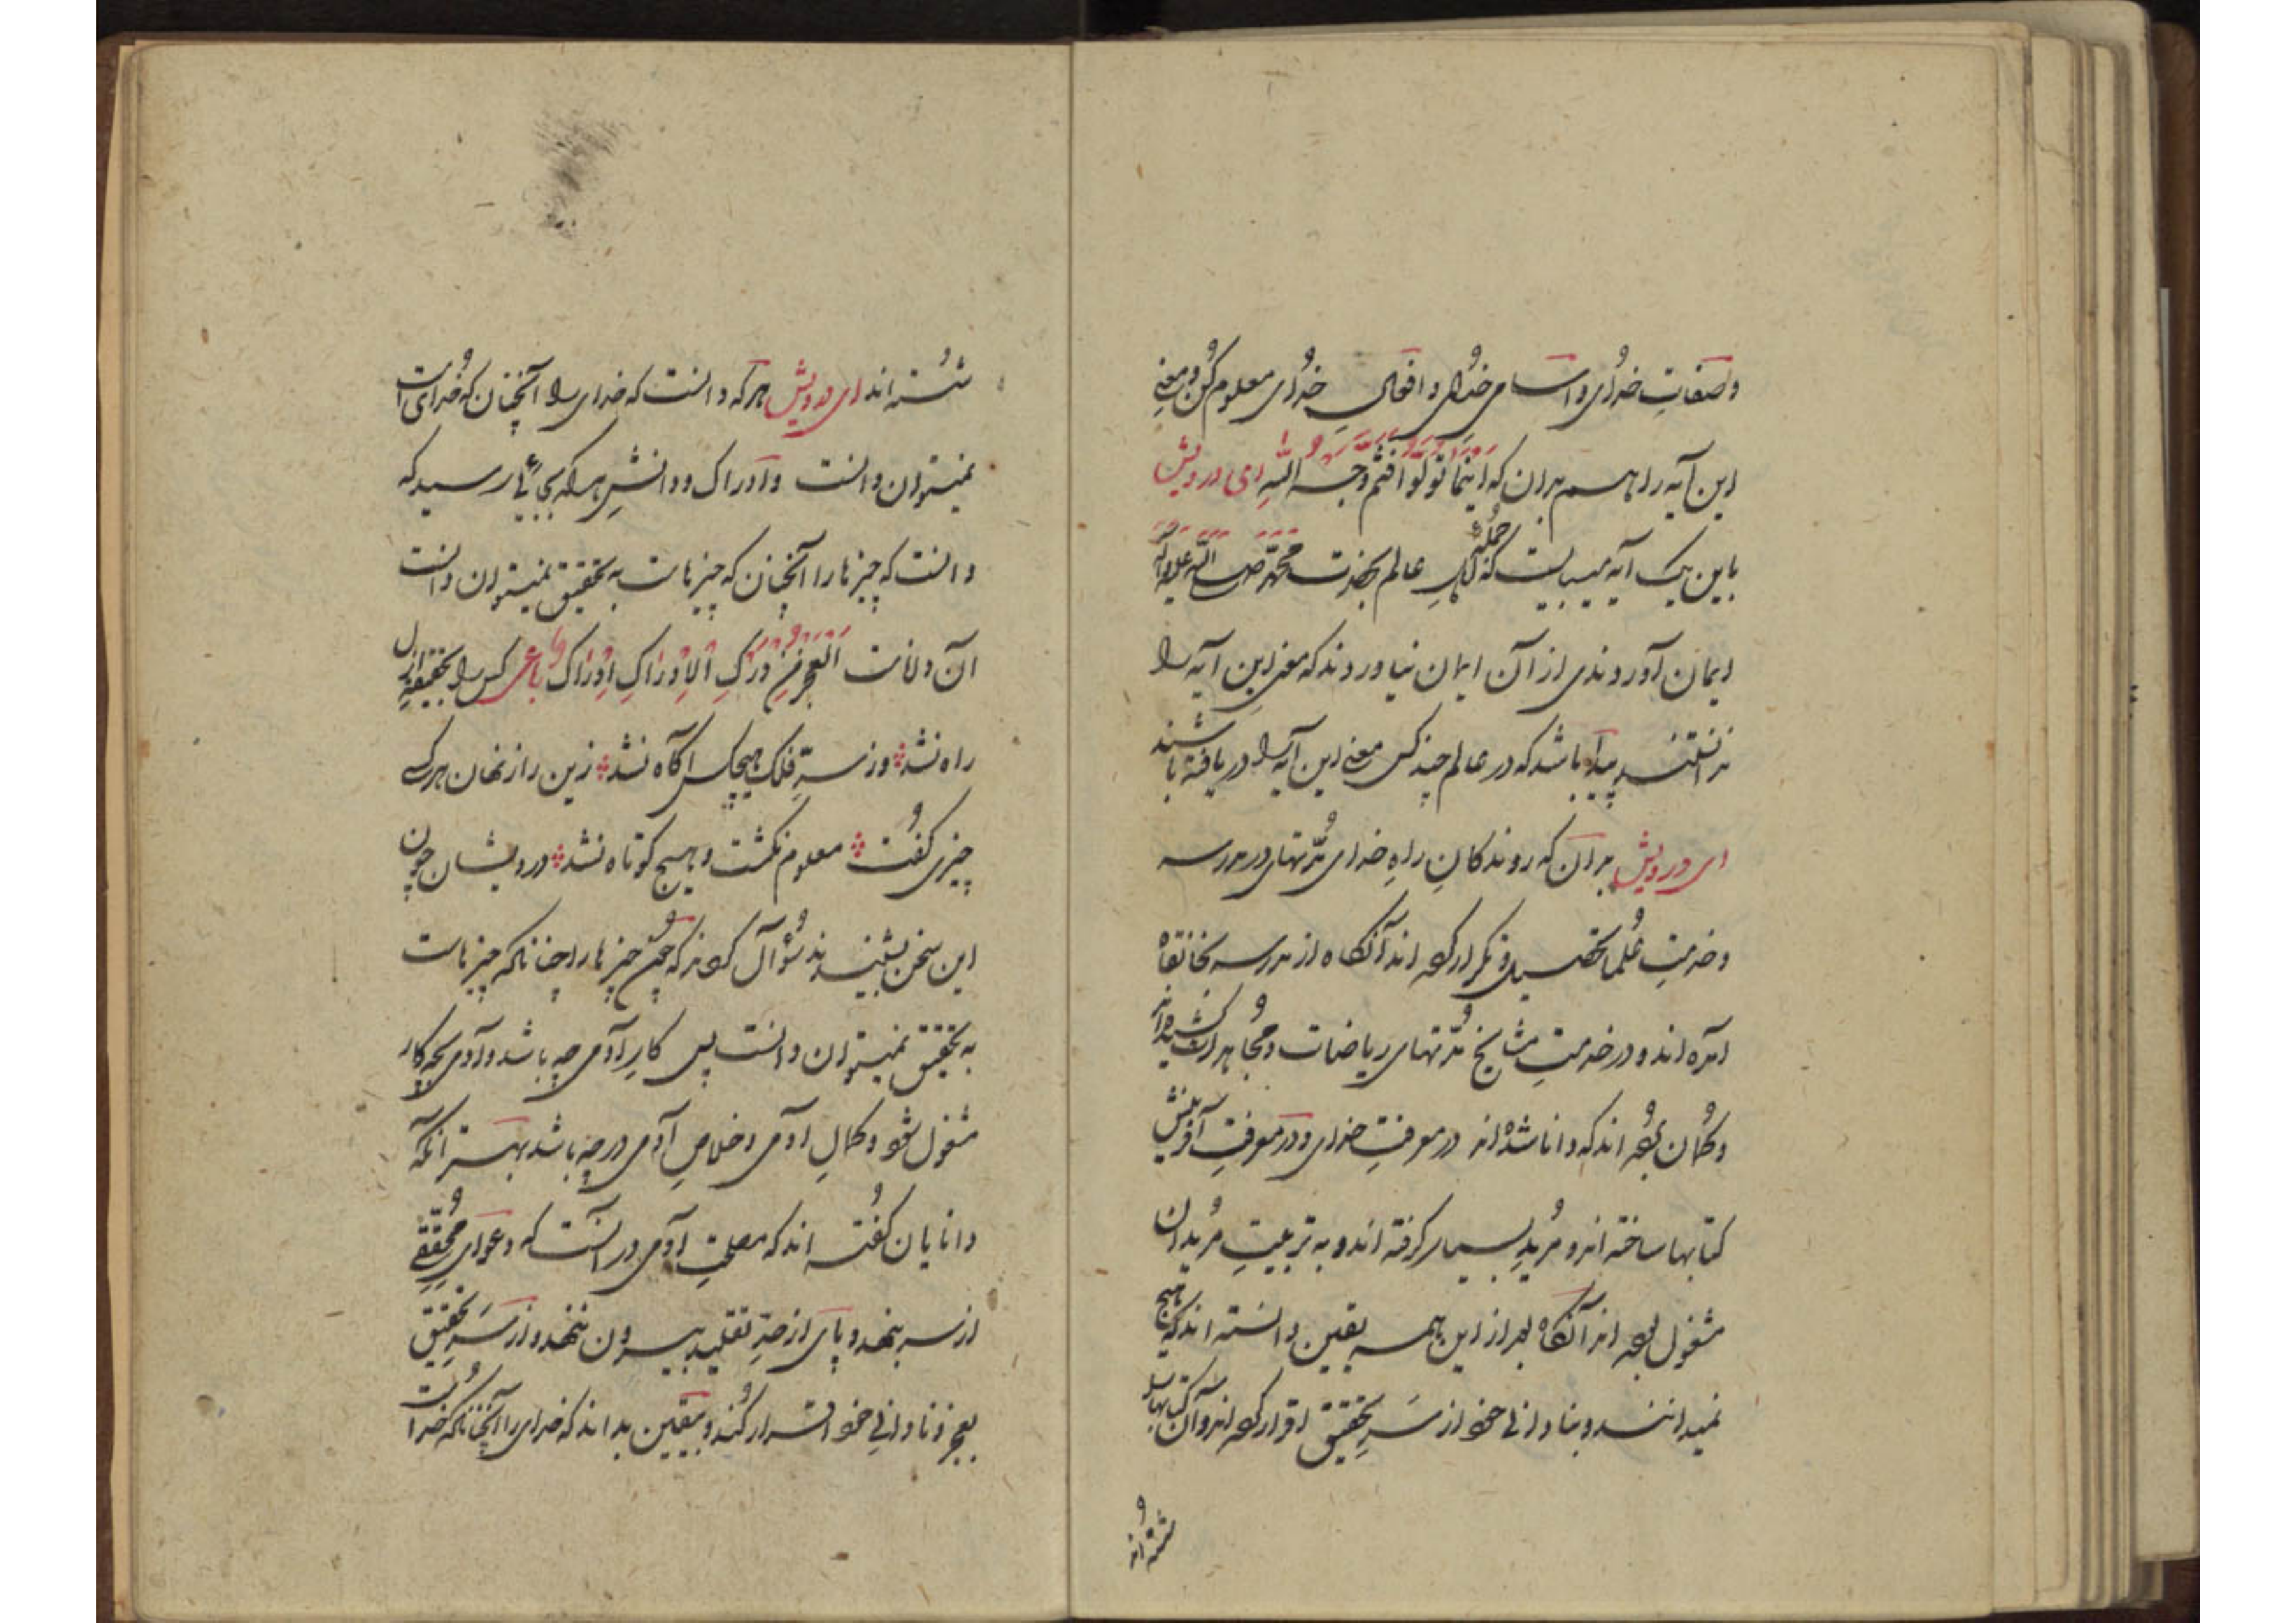 و صفات خدای و اسامی خدای و افعال خدای معلوم کن و معنی
این آیه را هم بدان که اینما تولوا فثم وجه الله ای درویش
باین یک آیه میبایست که جملهٔ اهل عالم بحضرت محمد صلی الله علیه و آله
ایمان آوردندی از آن ایمان نیاوردند که معنی این آیه را
ندانستند پیدا باشد که در عالم چند کس معنی این آیه را دریافته باشند
ای درویش بدان که روندکان راه خدای مدتهای در مدرسه
و خدمت علما تحصیل و تکرار کرده اند آنکاه از مدرسه بخانقاه
آمده اند و در خدمت مشایخ مدتهای ریاضات و مجاهدات کشیده اند
و کمان بوده اند که دانا شده اند در معرفت خدای و در معرفت آفرینش
کتابها ساخته اند و مرید بسیار کرفته اند و به تربیت مریدان
مشغول بوده اند آنکاه بعد از این همه یقین دانسته اند که هیچ
نمیدانند و بنادانی خود از سر تحقیق اقرار کرده اند و آن کتابها را
شسته اند
شسته اند ای درویش هر که دانست که خدای را آنچنان که خدای است
نمیتوان دانست و ادراک و دانش هر که بجایی رسید که
دانست که چیزها را آنچنان که چیزهاست به تحقیق نمیتوان دانست
آن داناست العجز من درک الادراک ادراک رباعی کس را بحقیقت ازل
راه نشد وز سر فلک هیچکس آگاه نشد زین راز نهان هر کسی
چیزی گفت معلوم نکشت و هیچ کوتاه نشد درویشان چون
این سخن بشنیدند سؤال کردند که چون چیزها را چنانکه چیزهاست
به تحقیق نمیتوان دانست پس کار آدمی چه باشد و آدمی بچه کار
مشغول شود و کمال آدمی و خلاص آدمی در چه باشد بهتر آنکه
دانایان گفته اند که مصلحت آدمی در آنست که دعوای محققی
از سر بنهد و پای از حد تقلید بیرون ننهد و از سر تحقیق
بعجز و نادانی خود اقرار کند و بیقین بداند که خدای را آنچنانکه خداست